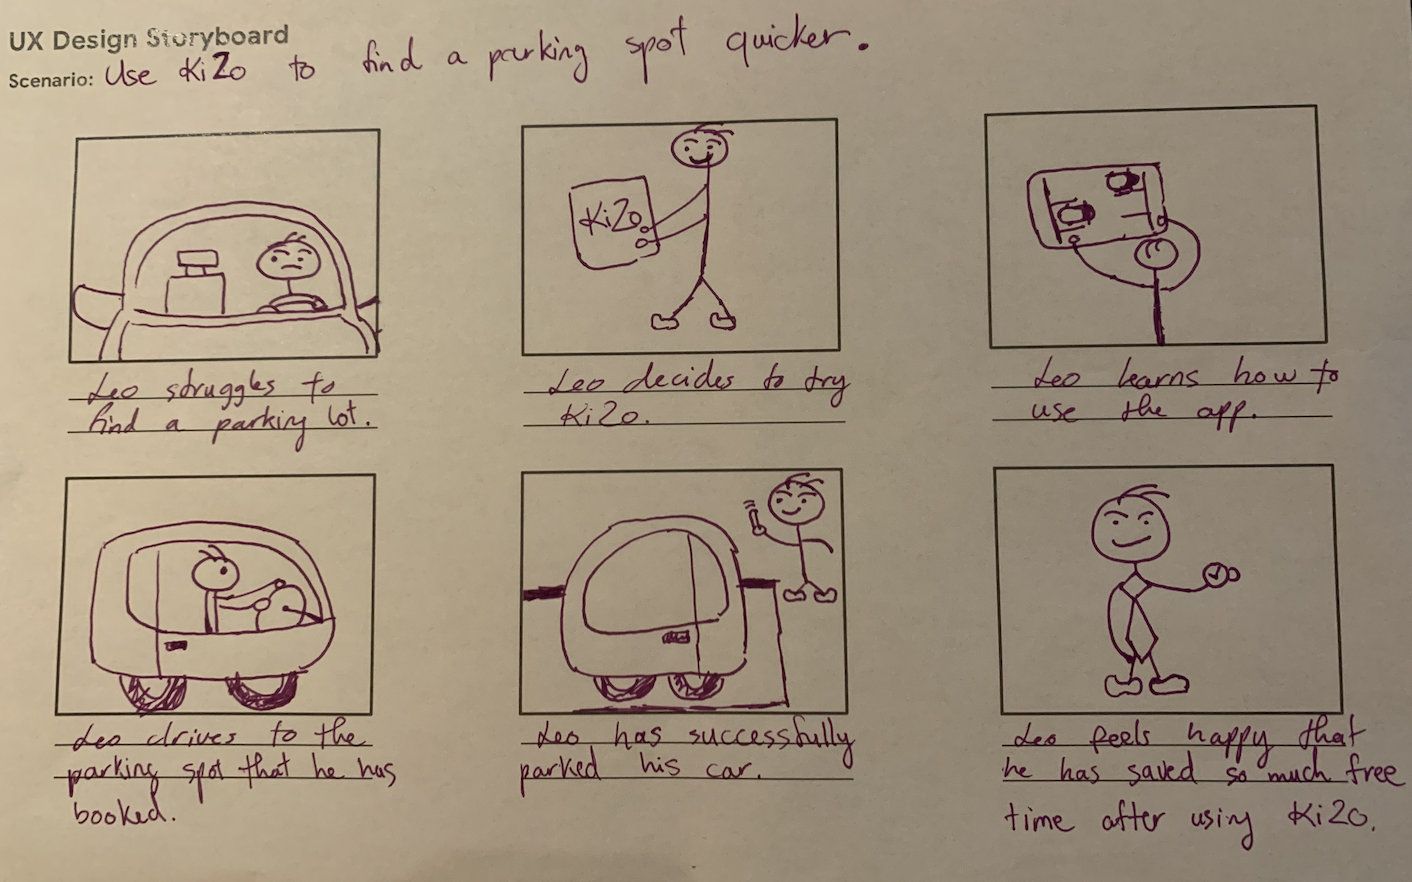 UX Design Storyboard
Scenario: Use KiZo to find a parking spot quicker.
KiZo
Leo struggles to
find a parking lot.
Leo decides to try
KiZo.
Leo learns how to
use the app.
Leo drives to the
parking spot that he has
booked.
Leo has successfully
parked his car.
Leo feels happy that
he has saved so much free
time after using KiZo.